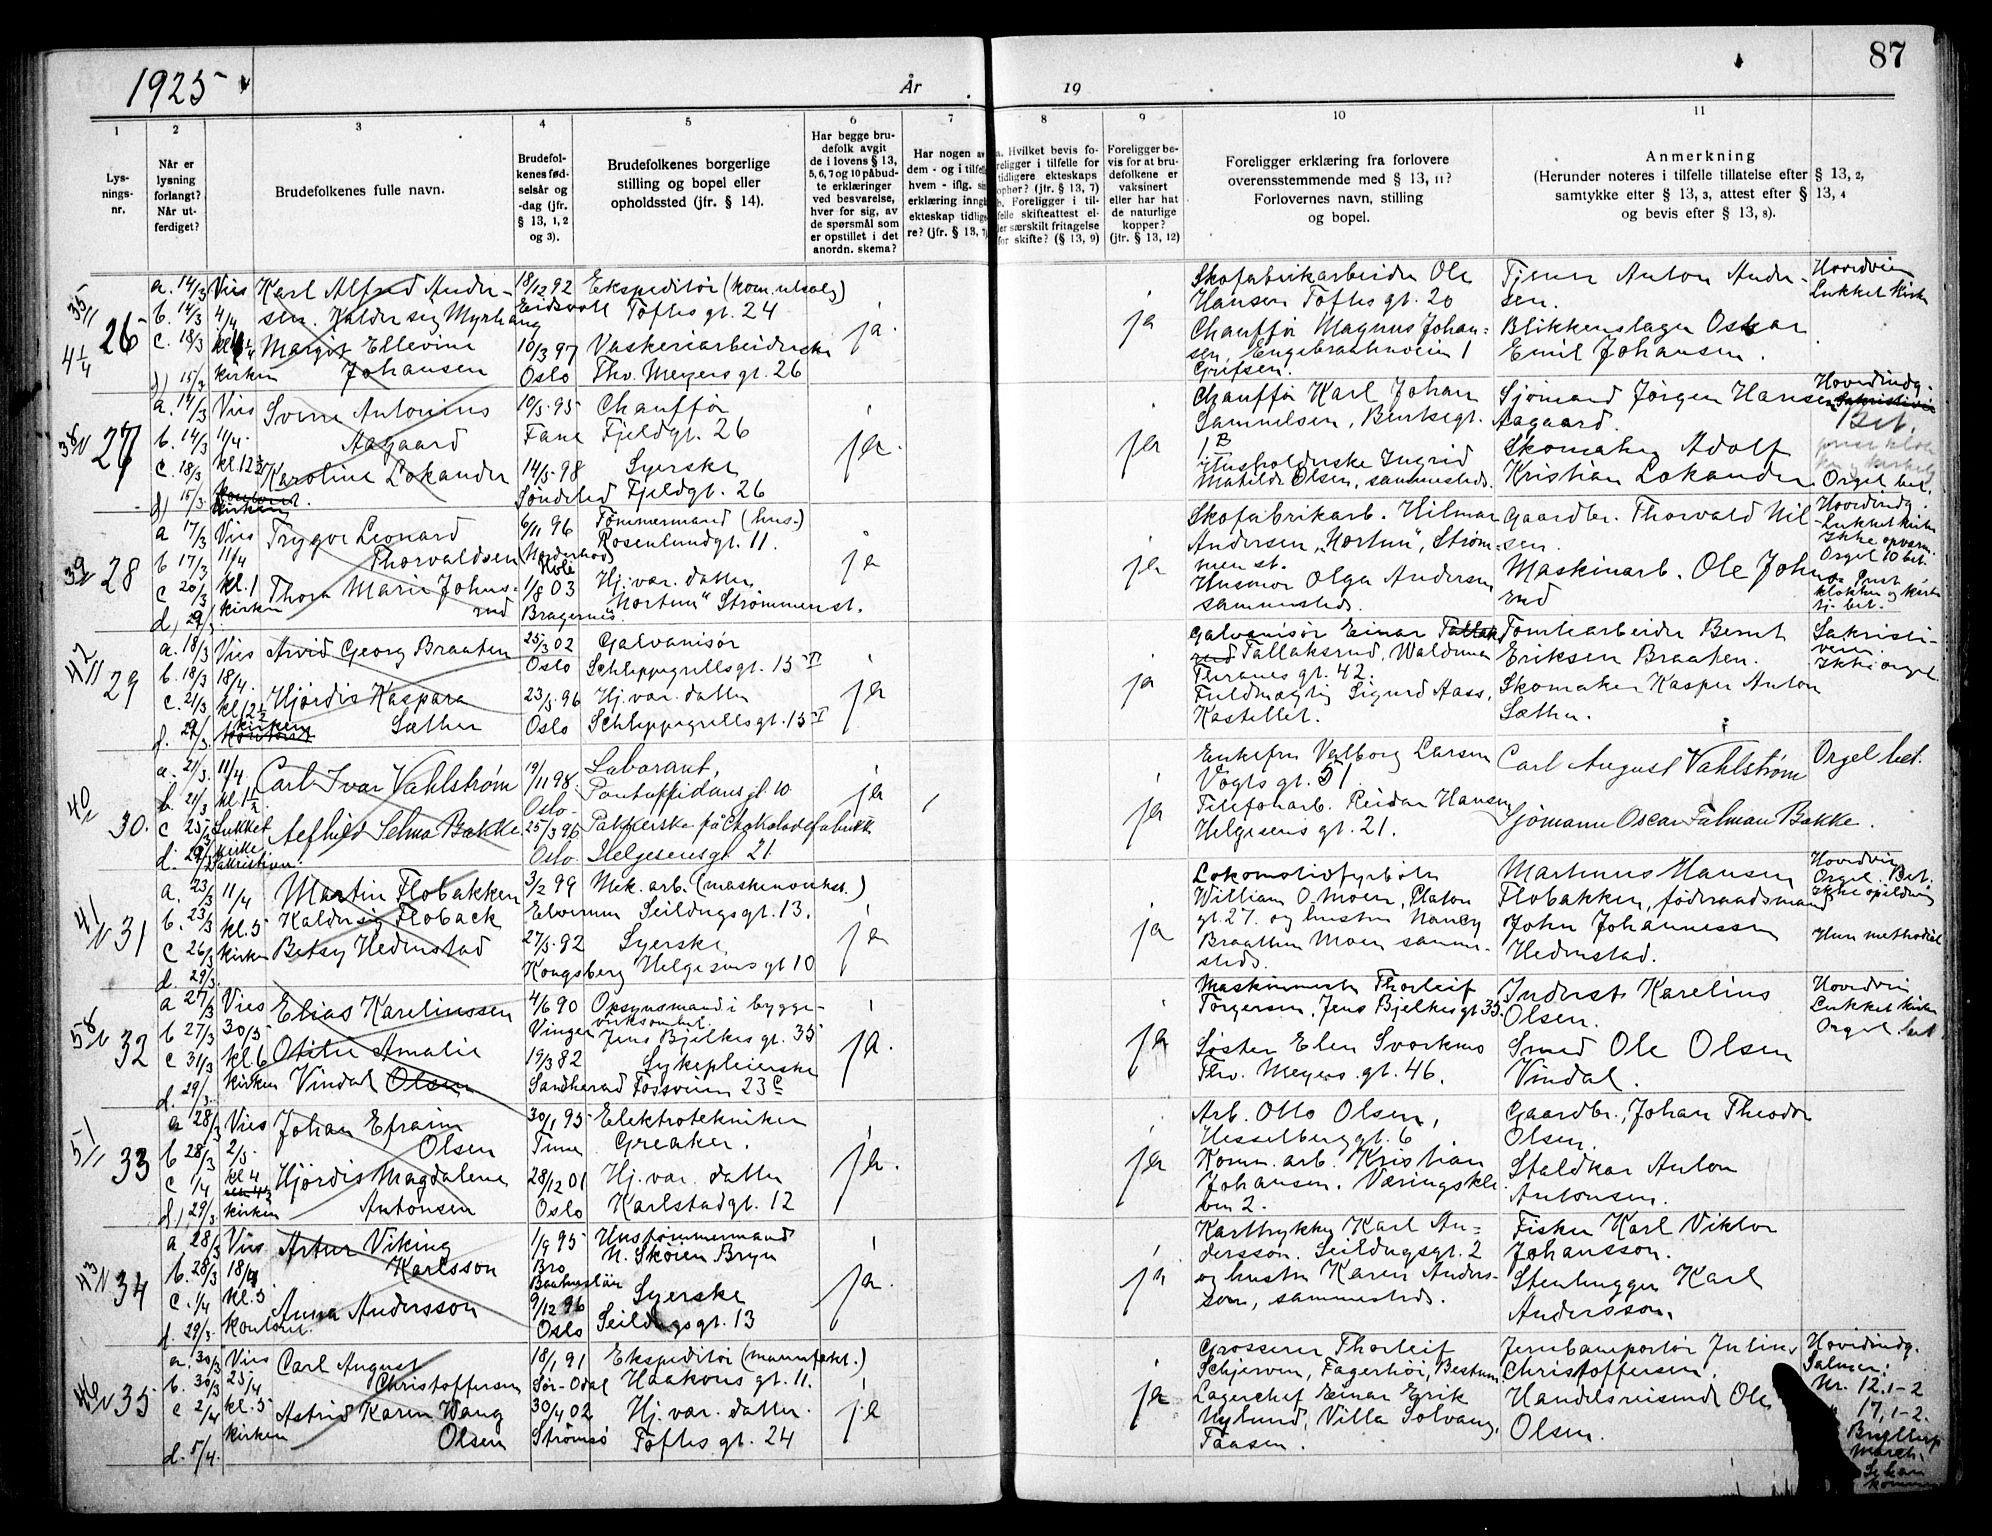 1925
År
19
87
1
2
3
4
5
6
7
8
9
10
11
Lys-
nings-
nr.
Når er
lysning
forlangt?
Når ut-
ferdiget?
Brudefolkenes fulle navn.
Brudefol-
kenes fød-
selsår og
-dag (jfr.
§ 13, 1, 2
og 3).
Brudefolkenes borgerlige
stilling og bopel eller
opholdssted (jfr. § 14).
Har begge bru-
defolk avgit
de i lovens § 13,
5, 6, 7 og 10 påbud-
te erklæringer
ved besvarelse,
hver for sig, av
de spørsmål som
er opstillet i det
anordn. skema?
Har nogen av
dem - og i tilfelle
hvem - iflg. sin
erklæring inngått
ekteskap tidlige-
re? (jfr. § 13, 7)
a. Hvilket bevis fo-
religger i tilfelle for
tidligere ekteskaps
ophør? (jfr. § 13, 7)
b. Foreligger i til-
felle skifteattest el-
ler særskilt fritagelse
for skifte? (§ 13, 9)
Foreligger be-
vis for at bru-
defolkene er
vaksinert
eller har hat
de naturlige
kopper?
(jfr. § 13, 12)
Foreligger erklæring fra forlovere
overensstemmende med § 13, 11?
Forlovernes navn, stilling
og bopel.
Anmerkning
(Herunder noteres i tilfelle tillatelse efter § 13, 2,
samtykke efter § 13, 3, attest efter § 13, 4
og bevis efter § 13, 8).
26
a. 14/3 Vies
b. 14/3 4/4
c. 18/3
d) 15/3 kirken
Karl Alfred Ander-
sen. Kalder sig Myrhaug
Margit Ellevine
Johansen
18/12 92
Eidsvoll
10/3 97
Oslo
Ekspeditør (kom. utsalg)
Toftes gt. 24
Vaskeriarbeiderske
Thv. Meyers gt. 26
ja
ja
Skofabrikarbeider Ole
Hansen Toftes gt. 20
Chauffør Magnus Johan-
sen, Engebraatenveien 1
Grefsen.
Tjener Anton Ander-
sen.
Blikkenslager Oskar
Emil Johansen.
Hovedveien
Lukket kirke
27
a. 14/3 Vies
b. 14/3 11/4.
c. 18/3 kl. 12½
d) 15/3 kontoret.
kirken
Sverre Antonius
Aagaard
Karoline Lokander
10/5-95
Fane
14/5-98
Søndeled
Chauffør
Fjeldgt. 26
Syerske
Fjeldgt. 26
ja.
ja
Chauffør Karl Johan
Samuelsen, Bentsegt.
1 B
Husholderske Ingrid
Matilde Olsen, sammesteds.
Sjømand Jørgen Hansen
Aagaard.
Skomaker Adolf
Kristian Lokander
Hovedindg.
Sakristiet
Bet.
Orgel bet.
28
a 17/3 Vies
b 17/3 11/4
c 20/3 kl. 1
d, 29/3. kirken
Trygve Leonard
Thorvaldsen
Thora Marie Johns-
rud
6/11 96
(Norderhov)
Hole
1/8 03
Bragernes
Tømmermand (hus-)
Rosenlundgt. 11.
Hj. var. datter
"Hortun" Strømmen st.
ja
ja
Skofabrikarb. Hilmar
Andersen, "Hortun", Strøm-
men st.
Husmor Olga Andersen
sammesteds.
Gaardbr. Thorvald Nil-
sen.
Maskinarb. Ole Johns-
rud
Hovedindg.
Lukket kirke
Ikke opvarm.
Orgel 10 bet.
Pust
klokker og kirke
tj. bet.
29
a. 18/3 Vies
b. 18/3 18/4.
c. 21/3 kl. 12½
d. 29/3. kirken
kontoret
Arvid Georg Braaten
Hjørdis Kaspara
Sæther
25/3 02
Oslo
23/5. 96
Oslo
Galvanisør
Schleppegrellsgt. 15 II
Hj. var. datter
Schleppegrellsgt. 15 I
ja
ja
Galvanisør Einar Tallaks
rud Tallaksrud, Waldemar
Thranes gt. 42.
Fuldmægtig Sigurd Aass,
Kastellet.
Tomtearbeider Bernt
Eriksen Braaten.
Skomaker Kasper Anton
Sæther.
Sakristi-
veien.
Ikke orgel
30.
a. 21/3. 11/4
b. 21/3 kl. 1½
c 25/3 Lukket
d. 29/3 kirke
Sakristien.
Carl Ivar Vahlstrøm
Aefhild Selma Bakke
19/11 98.
Oslo.
25/3 96
Oslo.
Laborant,
Pontoppidansgt 10
Pakkerske på Chokoladefabrikk
Helgesensgt. 21.
ja
ja
Enkefru Valborg Larsen
Vogts gt. 51.
Telefonarb. Reidar Hansen
Helgesens gt. 21.
Carl August Vahlstrøm
Sjømann Oscar Falman Bakke.
Orgel bet.
31
a. 23/3 11/4
b. 23/3 kl. 5
c 26/3 kirken
d. 29/3.
Martin Flobakken
Kalder sig Floback
Betsy Hedenstad
3/2 99
Elverum
27/5. 92
Kongsberg
Mek. arb. (maskinverkst.)
Seildugsgt. 13.
Syerske
Helgesens gt 10
ja
ja
Lokomotivfyrbøter
William O. Moen, Platou
gt. 27. og hustru Nancy
Braathen Moen samme-
steds.
Martinus Hansen
Flobakken, føderaadsmand
John Johannessen
Hedenstad.
Hovedvei
Orgel. Bet.
Ikke opildning
Hun methodist
32
a 27/3 Vies
b 27/3 30/5
c 31/3 kl 6
d. 29/3. kirken
Elias Karelinssen
Otilie Amalie
Vindal Olsen
4/6 90
Vinger
19/3 82
Sandherad
Opsynsmand i bygge-
virksomhet.
Jens Bjelkes gt. 35
Sykepleierske
Fossveien 23 C
ja.
ja
Maskinmester Thorleif
Torgersen, Jens Bjelkes gt 35.
Søster Elen Svarknes
Thv. Meyers gt. 46.
Inderst Karelius
Olsen.
Smed Ole Olsen
Vindal.
Hovedvei
Lukket kirke
Orgel bet
33
a 28/3 Vies
b 28/3 2/5
c 1/4 kl 4
d) 29/3. kirken
Johan Efraim
Olsen
Hjørdis Magdalene
Antonsen
30/1 95
Tune
28/12 01
Oslo
Elektrotekniker
Greaker.
Hj. var. datter
Karlstadgt. 12
ja.
ja
Arb. Otto Olsen,
Hesselberggt. 6
Komm. arb. Kristian
Johansen. Væringskle-
ven 2.
Gaardbr. Johan Theodor
Olsen.
Staldkar Anton
Antonsen.
34
a 28/3 Vies
b. 28/3 18/4
c. 1/4 kl. 5
d. 29/3. kontoret.
Artur Viking
Karlsson
Anna Andersson
1/9 95
Bro
Baahuslän
9/12 96
Oslo
Hustømmermand
N. Skøien Bryn
Syerske
Seildugsgt. 13
ja.
ja
Karttrykker Karl An-
dersson. Seildugsgt. 2
og hustru Karen Anders-
son, sammesteds.
Fisker Karl Viktor
Johansson.
Stenhugger Karl
Andersson.
35
a. 30/3 Vies
b. 30/3 25/4
c 2/4 kl. 5
d. 5/4. kirken
Carl August
Christoffersen
Astrid Karen Wang
Olsen
18/1 91
Sør-Odal
30/4 02
Strømsø
Ekspeditør (manufakt.)
Haakons gt. 11.
Hj. var. datter.
Toftes gt. 24
ja
ja
Grosserer Thorleif
Schjerven, Fagerhøi, Bestum
Lagerchef Einar Erik
Nylund, Villa Solvang,
Taasen.
Jernbaneportør Julius
Christoffersen.
Handelsreisende Ole
Olsen.
Hovedindg.
Salmer:
Nr. 12, 1-2
17, 1-2.
Bryllups
march.